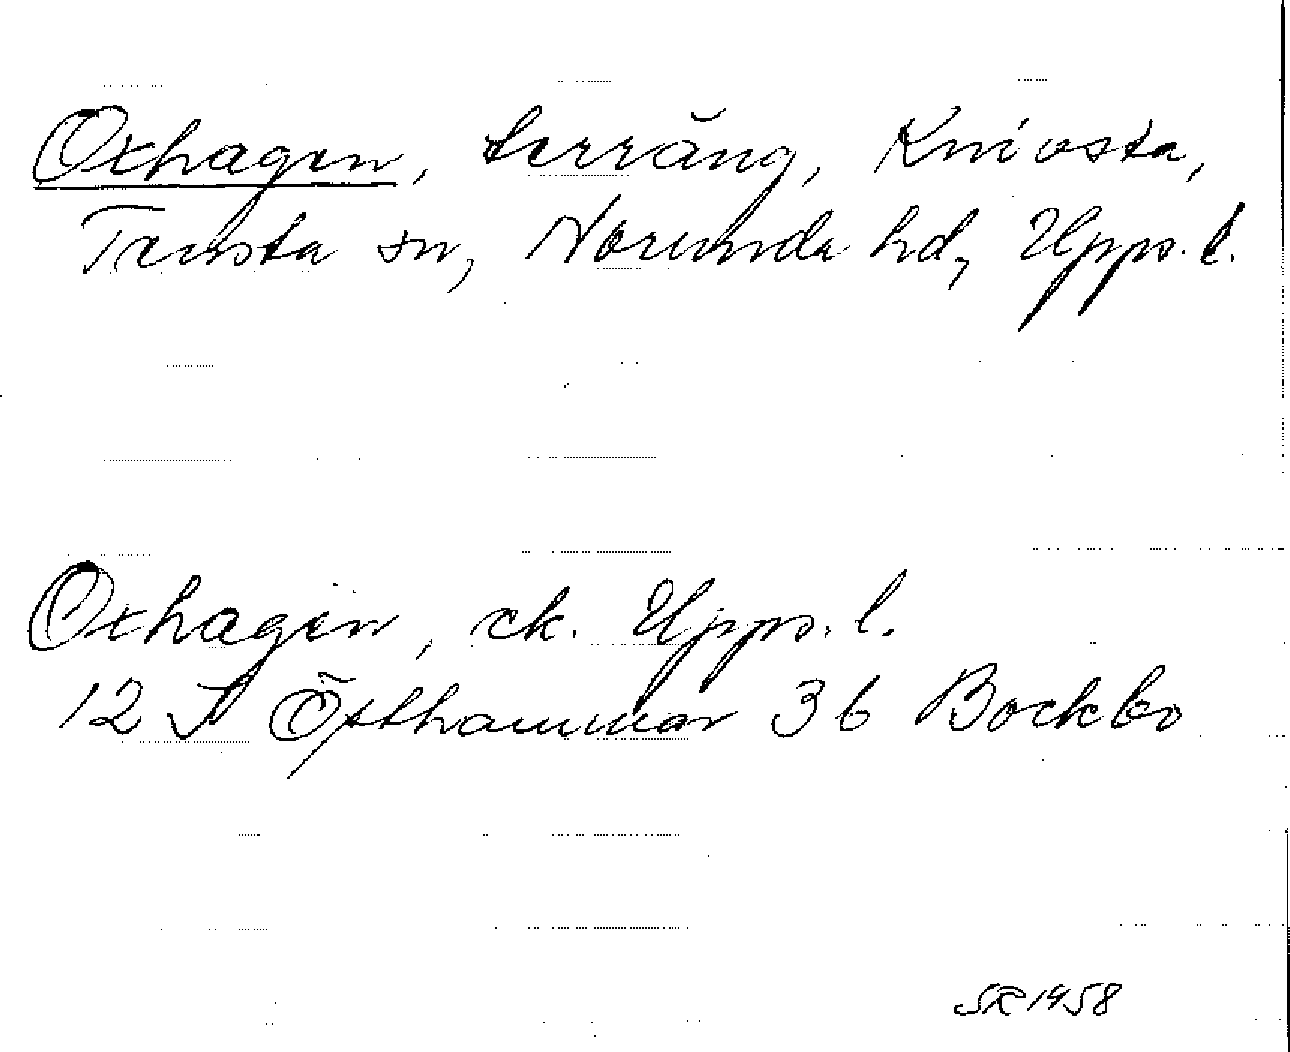 Oxhagen, terräng, Knivsta,
Tensta sn, Norunda hd, Upps. l.
Oxhagen, ek. Upps. l.
12 I Östhammar 3 b Bockbo
SR 1958